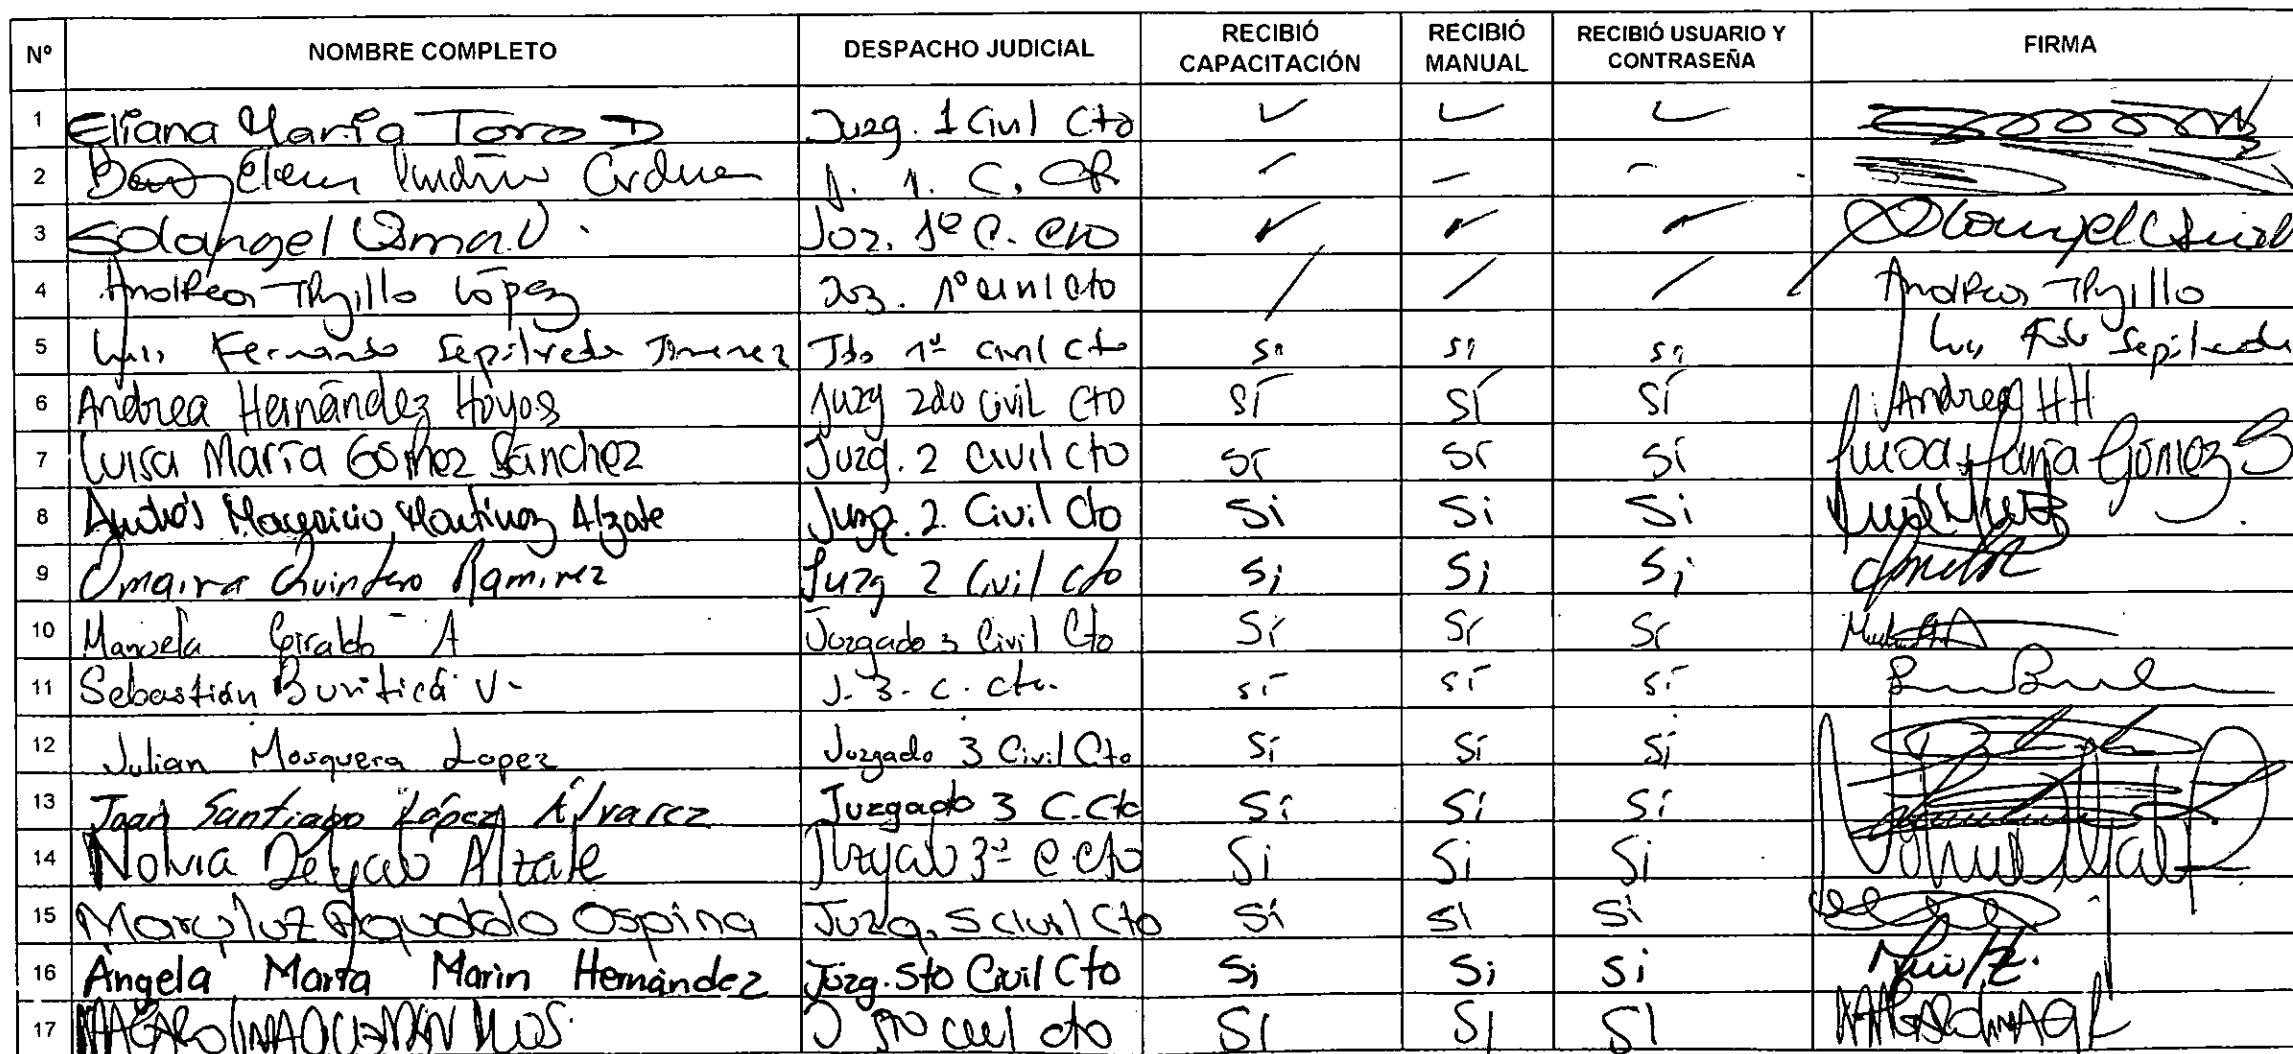 Nº NOMBRE COMPLETO DESPACHO JUDICIAL RECIBIÓ CAPACITACIÓN RECIBIÓ MANUAL RECIBIÓ USUARIO Y CONTRASEÑA FIRMA
1 Eliana María Toro D Juzg. 1 Civil Cto
2 Elena J. 1. C.
3 Solangel Juz. 1º C. Cto
4 Andrea Trujillo López Juz. 1º Civil Cto Andrea Trujillo
5 Luis Fernando Sepúlveda Jimenez Jdo 1º Civil Cto si si si Luis Fdo Sepúlveda
6 Andrea Hernández Hoyos Juzg 2do Civil Cto sí sí sí Andrea HH
7 Luisa María Gómez Sánchez Juzg. 2 Civil Cto sí sí sí Luisa María Gómez S
8 Andrés Mauricio Martínez Alzate Juzg. 2 Civil Cto Si Si Si
9 Omaira Quintero Ramirez Juzg 2 Civil Cto Si Si Si
10 Manuela Giraldo A Juzgado 3 Civil Cto Sí Sí Sí
11 Sebastián Buriticá V. J. 3. C. Cto. sí sí sí
12 Julian Mosquera Lopez Juzgado 3 Civil Cto Sí Sí Sí
13 Joan Santiago López Álvarez Juzgado 3 C. Cto Sí Sí Sí
14 Alzate Juzgado 3º C. Cto Si Si Si
15 Maryluz Ospina Juzg. 5 Civil Cto Si Si Si
16 Ángela María Marin Hernández Juzg. 5to Civil Cto Si Si Si
17 J 5to Civil Cto SI SI SI